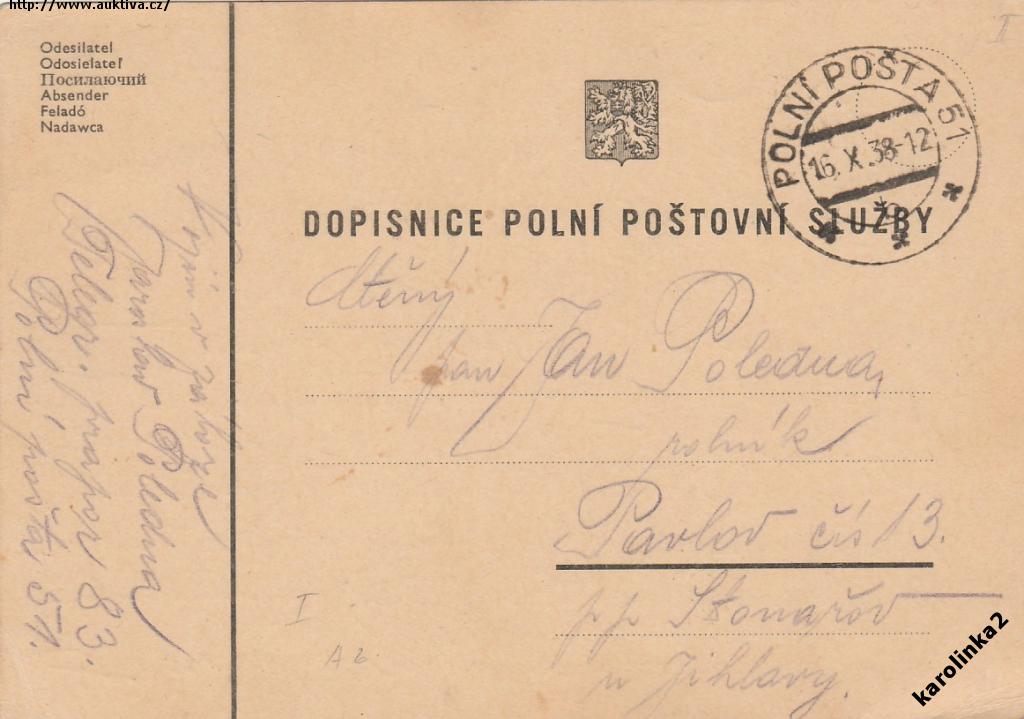 http://www.auktiva.cz/
Odesilatel
Odosielateľ
Посилаючий
Absender
Feladó
Nadawca
I
POLNÍ POŠTA 51
16. X. 38-12
DOPISNICE POLNÍ POŠTOVNÍ SLUŽBY
Ctěný
pan Jan Poledna,
rolník
Pavlov čís 13.
pp Stonařov
u Jihlavy.
Vojín v záloze
Jaroslav Poledna
Telegr. prapor 83.
Polní pošta 51.
I
A2
karolinka2